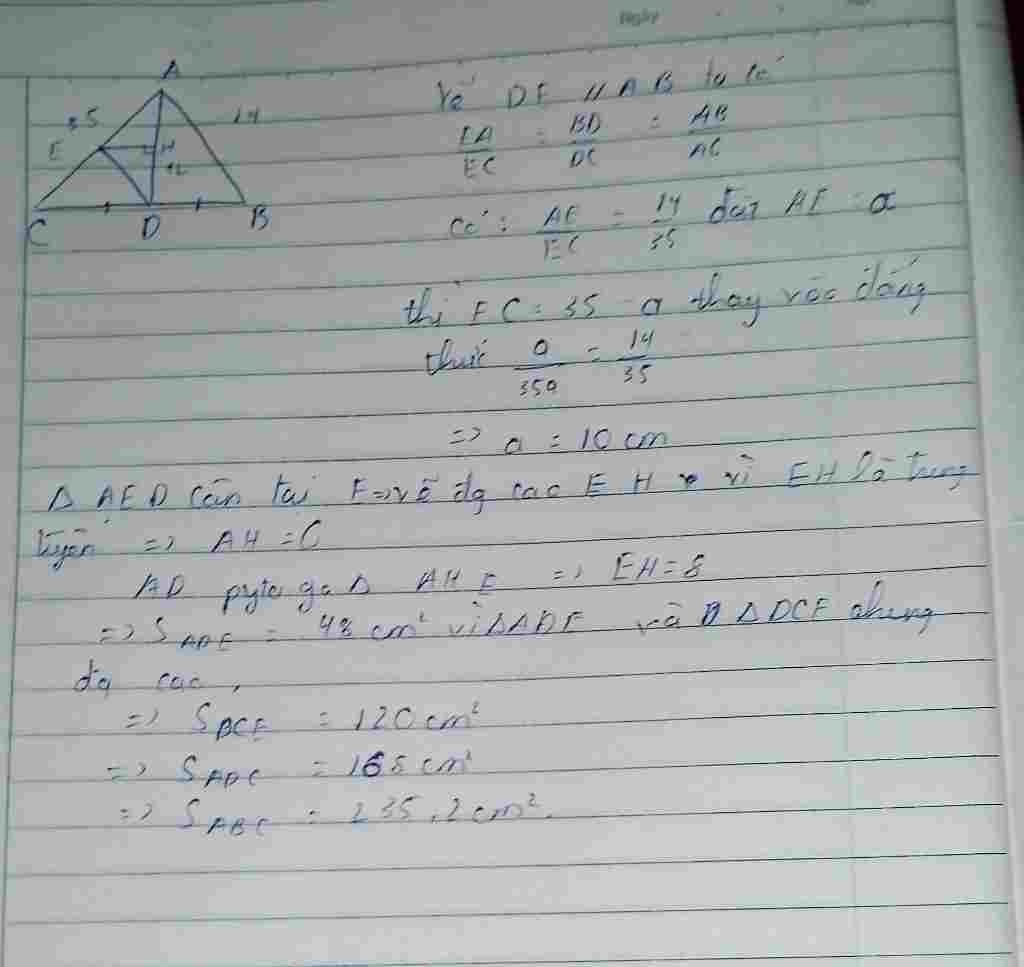 Ngày
A
35
14
E
H
12
C
D
B
Vẽ DE // AB ta có
EA/EC = BD/DC = AB/AC
Có: AE/EC = 14/35 đặt AE = a
thì EC = 35 - a thay vào đẳng
thức a/35a = 14/35
=> a = 10 cm
Δ AED cân tại E => vẽ đg cao E H vì EH là trung
tuyến => AH = 6
AD pytago Δ AHE => EH = 8
=> S ADE = 48 cm² vì ΔADE và Δ DCE chung
đg cao,
=> S DCE = 120 cm²
=> S ADC = 168 cm²
=> S ABC = 235,2 cm².